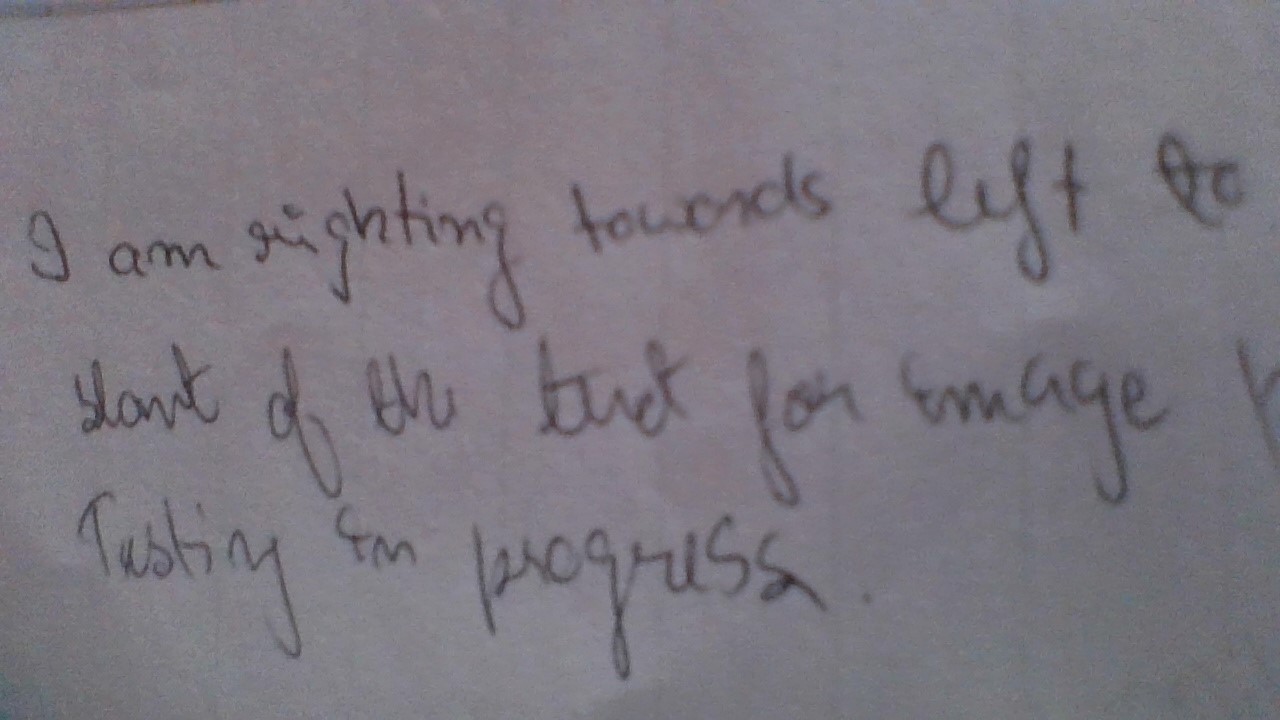 I am righting towards left to
start of the text for image
Testing in progress.